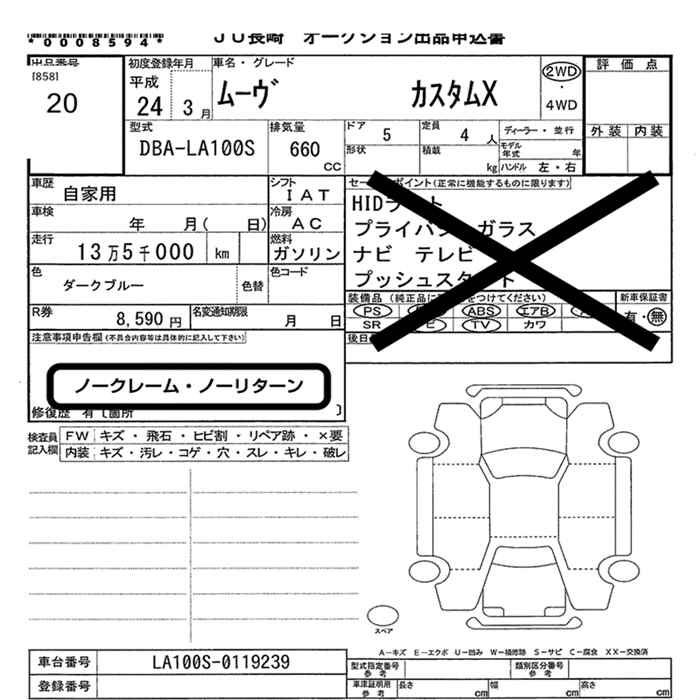 *0008594*
JU長崎 オークション出品申込書
出品番号
[858]
20
初度登録年月
平成
24 3月
車名・グレード
ムーヴ カスタムX
2WD
・
4WD
評価点
外装 内装
型式
DBA-LA100S
排気量
660
CC
ドア
5
定員
4人
形状
積載
kg
ディーラー・並行
モデル年式 年
ハンドル 左・右
車歴
自家用
シフト
IAT
車検
年 月( 日)
冷房
AC
走行
13万5千000 km
燃料
ガソリン
色
ダークブルー
色替
色コード
R券
8,590 円
名変通知期限
月 日
セールスポイント(正常に機能するものに限ります)
HIDライト
プライバシーガラス
ナビ テレビ
プッシュスタート
装備品(純正品に○をつけてください)
PS
ABS
エアB
SR
TV
カワ
新車保証書
有・無
後日
注意事項申告欄(不具合内容等は具体的に記入して下さい)
ノークレーム・ノーリターン
修復歴 有〔箇所 〕
検査員記入欄
FW キズ・飛石・ヒビ割・リペア跡・×要
内装 キズ・汚レ・コゲ・穴・スレ・キレ・破レ
スペア
A-キズ E-エクボ U-凹み W-補修跡 S-サビ C-腐食 XX-交換済
車台番号
LA100S-0119239
登録番号
型式指定番号
参考
類別区分番号
参考
車庫証明用
参考
長さ cm
幅 cm
高さ cm